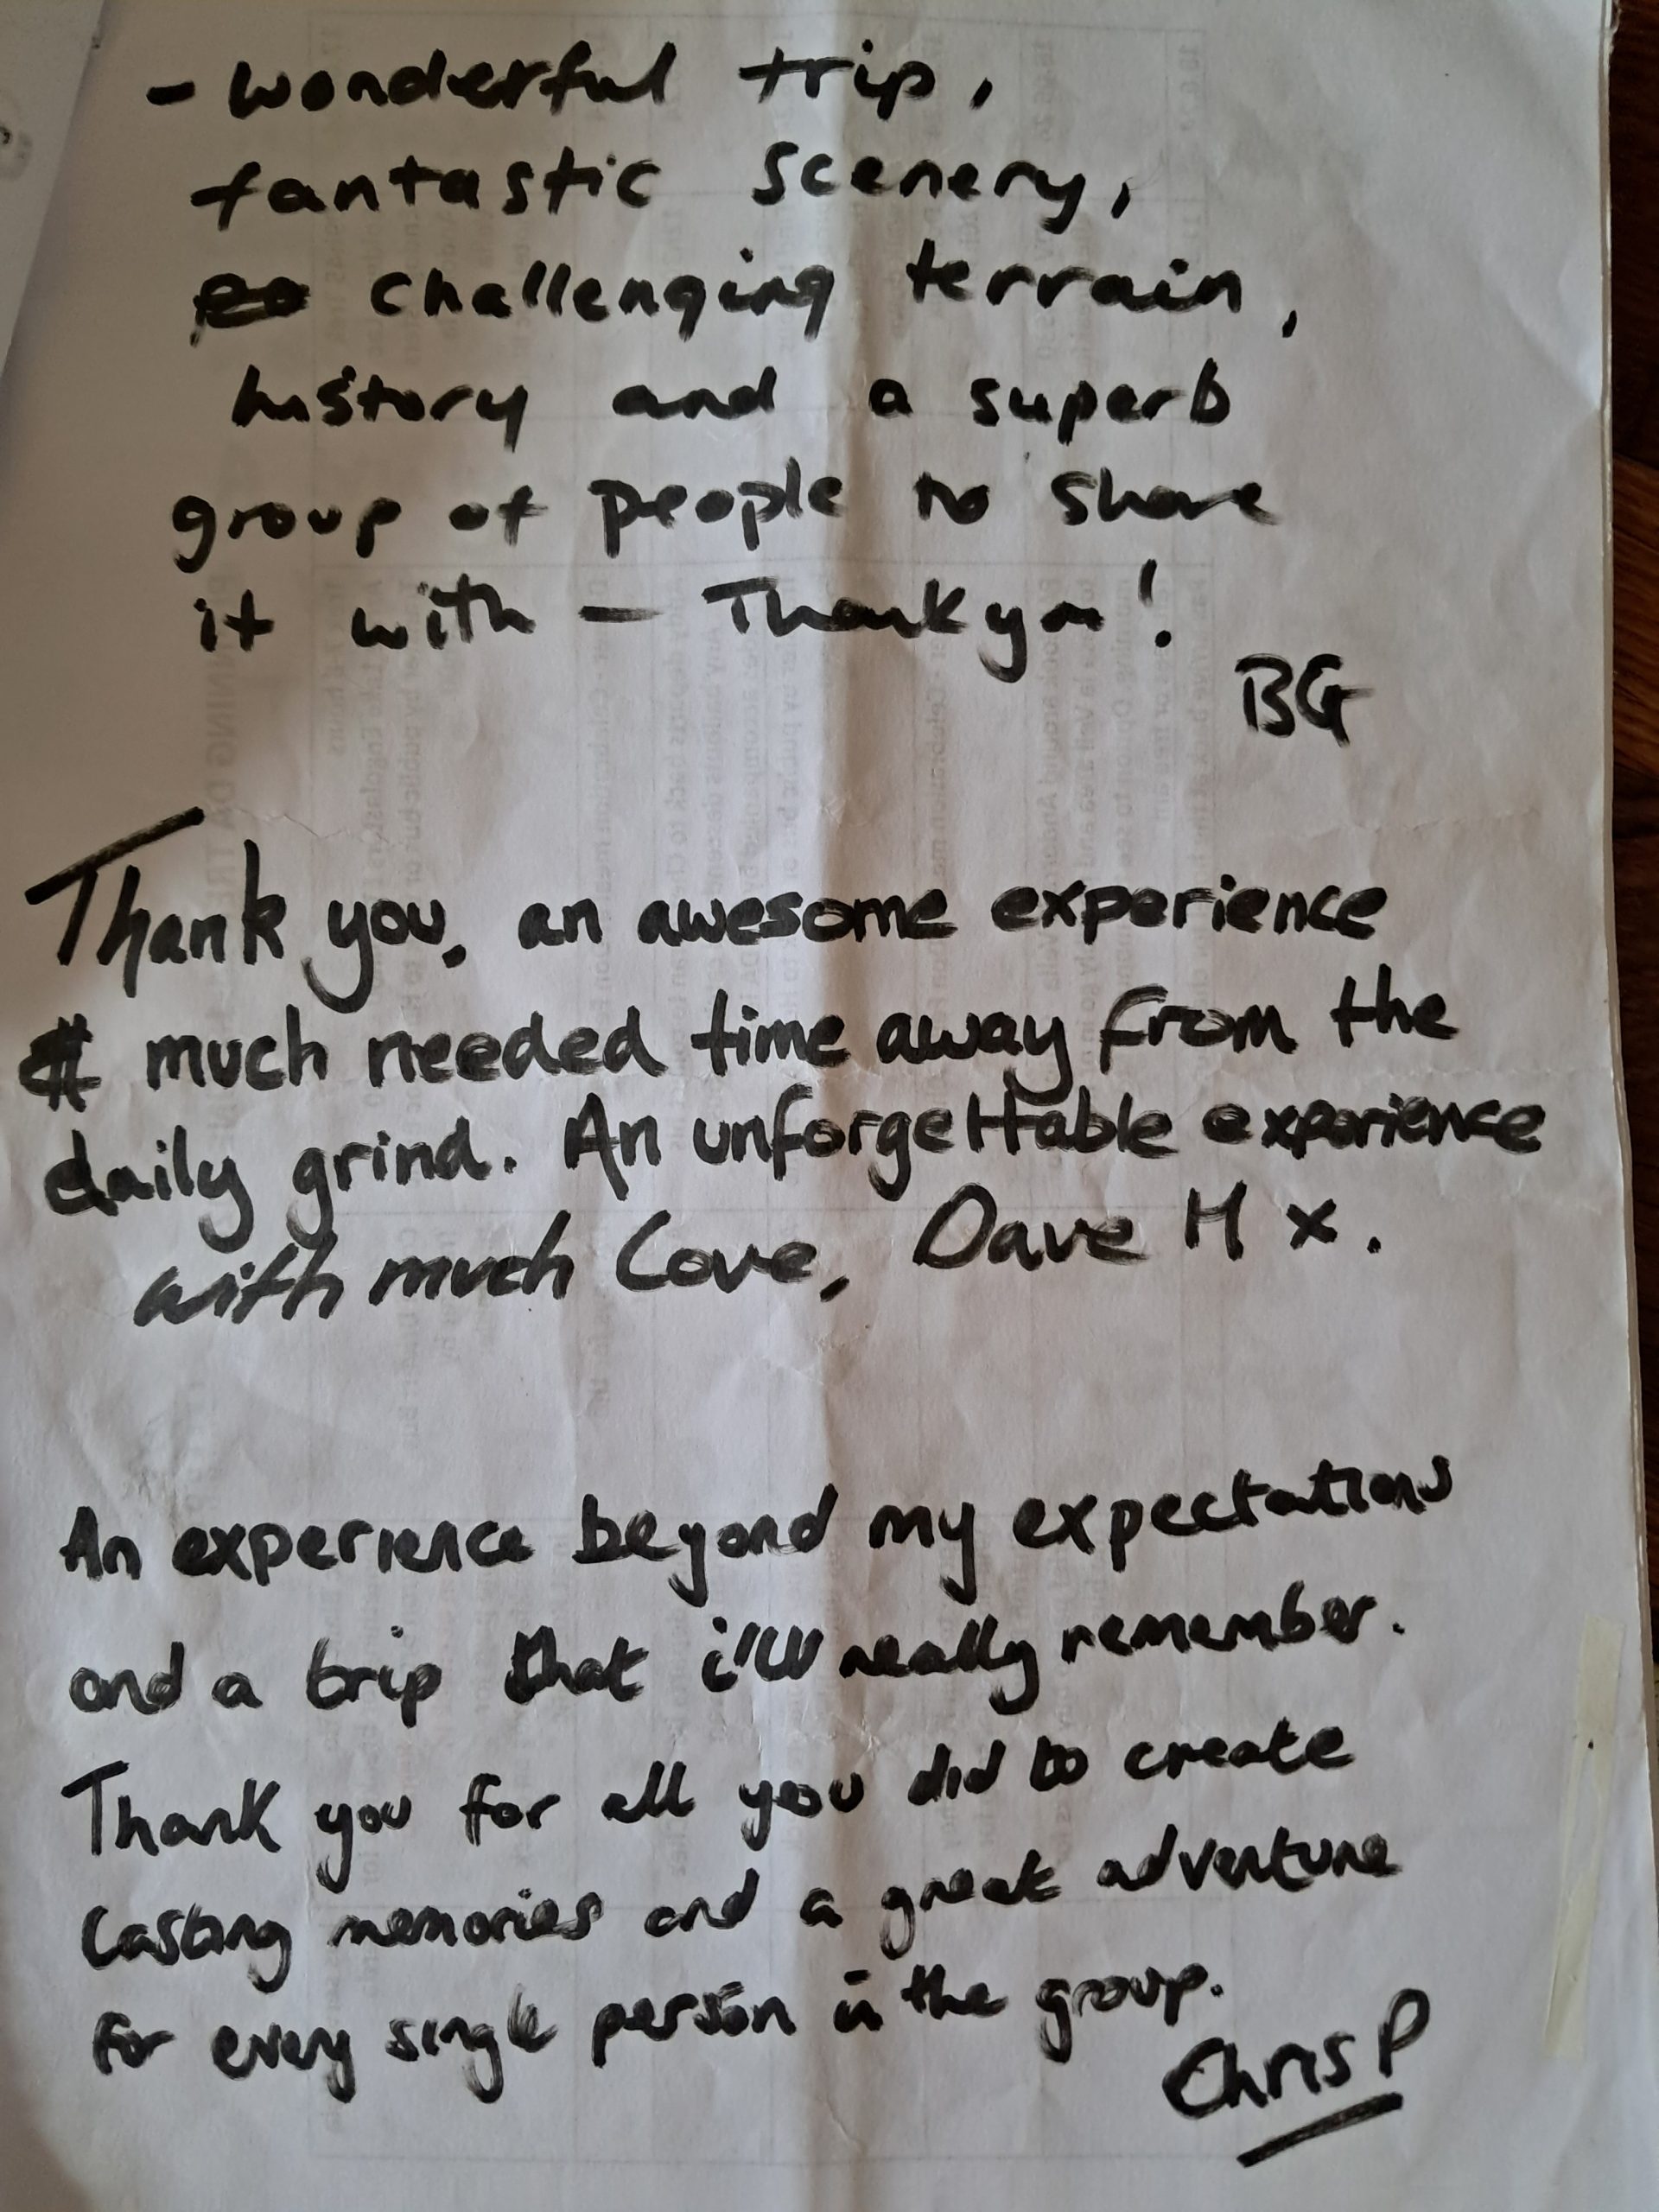 - Wonderful trip,
fantastic scenery,
challenging terrain,
history and a superb
group of people to share
it with – Thank you!
BG
Thank you, an awesome experience
& much needed time away from the
daily grind. An unforgettable experience
with much Love, Dave H x.
An experience beyond my expectations
and a trip that i'll really remember.
Thank you for all you did to create
lasting memories and a great adventure
for every single person in the group.
Chris P